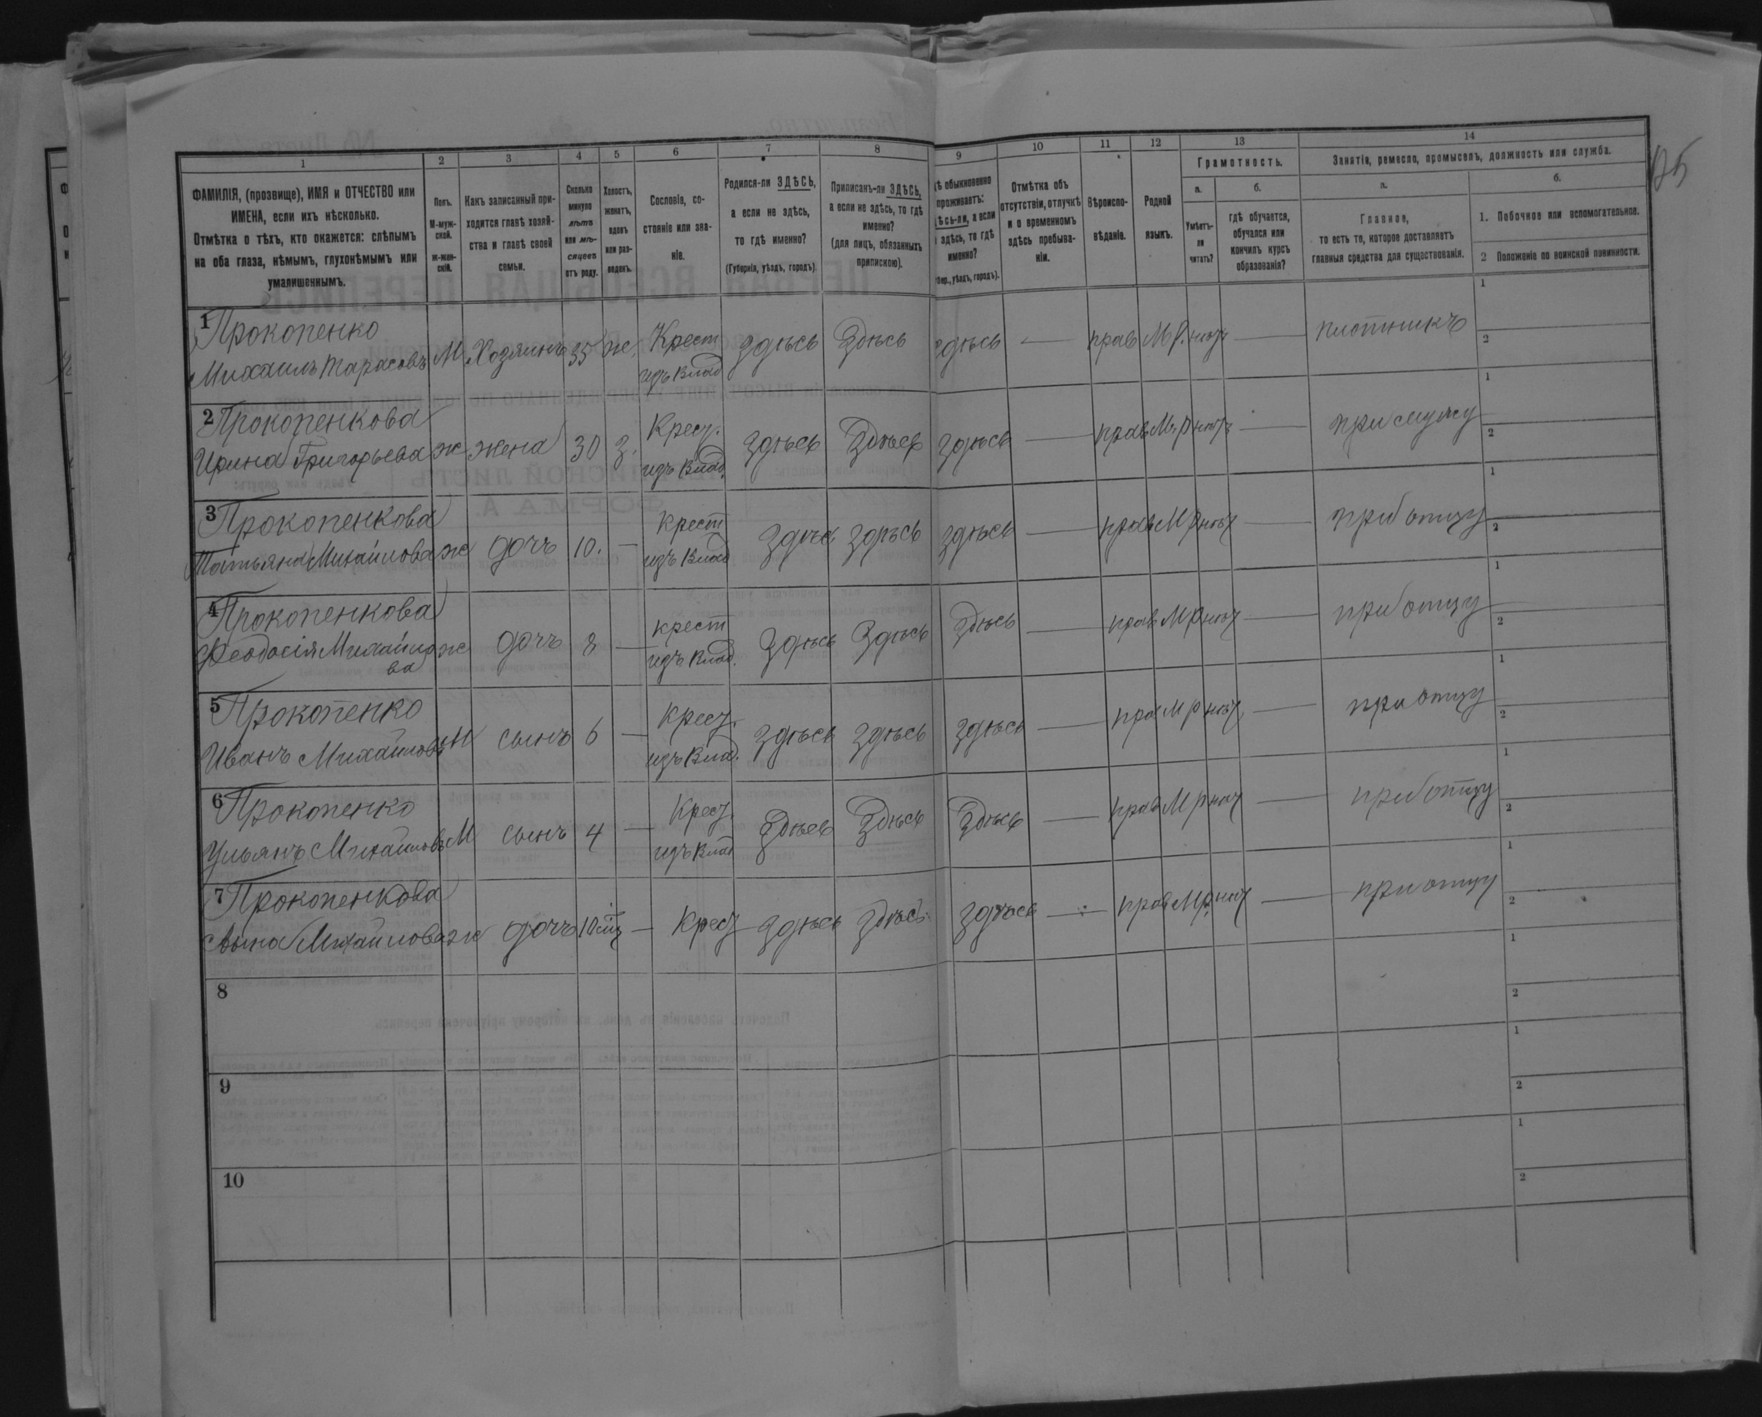 1 2 3 4 5 6 7 8 9 10 11 12 13 14
ФАМИЛІЯ, (прозвище), ИМЯ и ОТЧЕСТВО или ИМЕНА, если ихъ нѣсколько.
Отмѣтка о тѣхъ, кто окажется: слѣпымъ на оба глаза, нѣмымъ, глухонѣмымъ или умалишеннымъ.
Полъ. М-мужской. ж-женскій.
Какъ записанный приходится главѣ хозяйства и главѣ своей семьи.
Сколько минуло лѣтъ или мѣсяцевъ отъ роду.
Холостъ, женатъ, вдовъ или разведенъ.
Сословіе, состояніе или званіе.
Родился-ли ЗДѢСЬ, а если не здѣсь, то гдѣ именно?
(Губернія, уѣздъ, городъ).
Приписанъ-ли ЗДѢСЬ, а если не здѣсь, то гдѣ именно?
(для лицъ, обязанныхъ припискою).
обыкновенно проживаетъ:
а если здѣсь, то гдѣ именно?
уѣздъ, городъ).
Отмѣтка объ отсутствіи, отлучкѣ и о временномъ здѣсь пребываніи.
Вѣроисповѣданіе.
Родной языкъ.
Грамотность.
а. б.
Умѣетъ-ли читать?
гдѣ обучается, обучался или кончилъ курсъ образованія?
Занятіе, ремесло, промыселъ, должность или служба.
а. б.
Главное,
то есть то, которое доставляетъ главныя средства для существованія.
1. Побочное или вспомогательное.
2 Положеніе по воинской повинности.
1 Прокопенко
Михаилъ Тарасовъ М Хозяинъ 35 ж. Крест изъ Влад здѣсь Здѣсь здѣсь — прав М.р. нѣтъ — плотникъ 1 2
2 Прокопенкова
Ирина Григорьева ж жена 30 з. Крест. изъ Влад. здѣсь Здѣсь здѣсь — прав М.р нѣтъ — при мужу 1 2
3 Прокопенкова
Татьяна Михайлова ж дочъ 10. — крест изъ Влад здѣсь здѣсь здѣсь — прав М р нѣтъ — при отцу 1 2
4 Прокопенкова
Феодосія Михайлова ж дочъ 8 — крест изъ Влад. здѣсь здѣсь здѣсь — прав М р нѣтъ — при отцу 1 2
5 Прокопенко
Иванъ Михайловъ М сынъ 6 — крест. изъ Влад. здѣсь здѣсь здѣсь — прав М р нѣтъ — при отцу 1 2
6 Прокопенко
Ульянъ Михайловъ М сынъ 4 — Крест. изъ Влад здѣсь Здѣсь Здѣсь — прав М р нѣтъ — при отцу 1 2
7 Прокопенкова
Михайлова ж дочъ 10 — Крест здѣсь здѣсь здѣсь — прав М р нѣтъ — при отцу 1 2
8 1 2
9 1 2
10 1 2